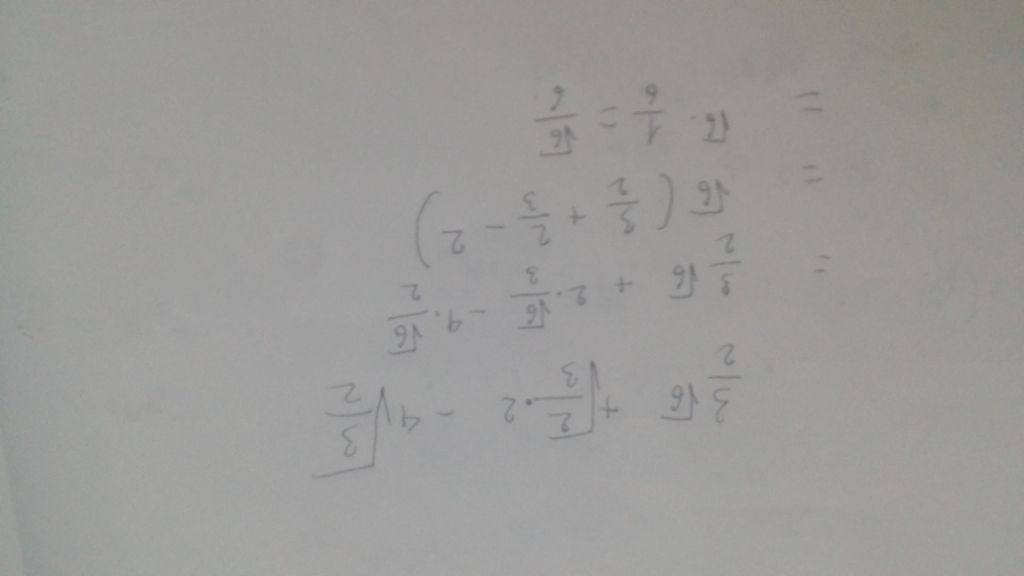 3/2 √6 + √(2/3) · 2 - 4√(3/2)
= 3/2 √6 + 2 · √6/3 - 4 · √6/2
= √6 (3/2 + 2/3 - 2)
= √6 · 1/6 = √6/6